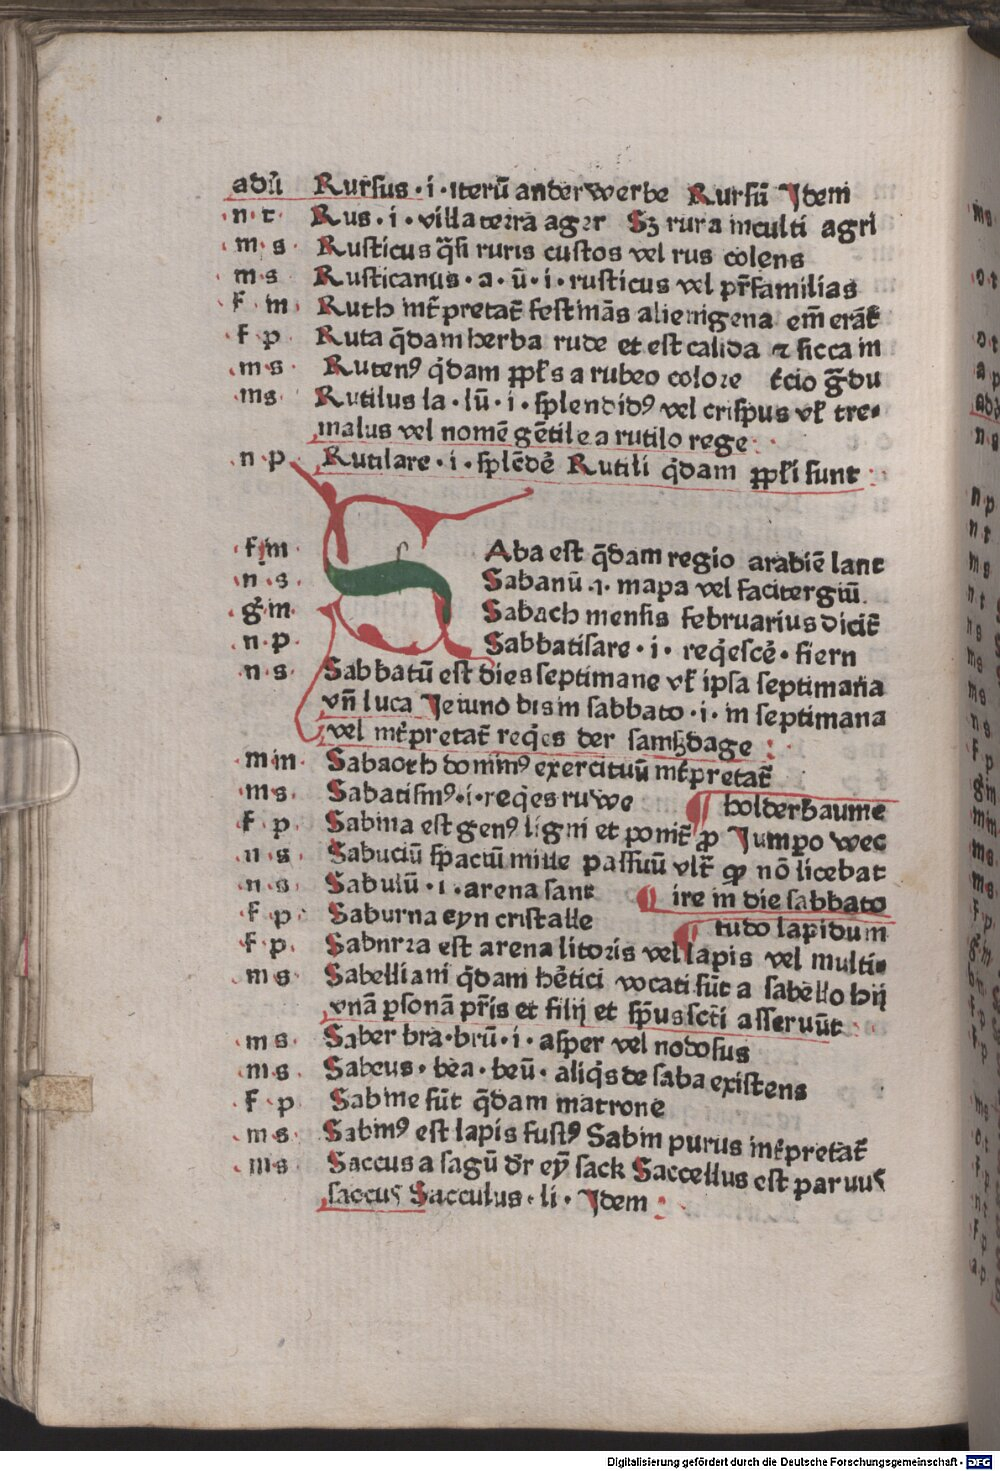 adū Rursus · i · iterū anderwerbe Rursū Idem
n · t · Rus · i · villa terra ager Sꝫ rura inculti agri
m · s · Rusticus q̄si ruris custos vel rus colens
m s Rusticanus · a · ū · i · rusticus vel pr̄familias
f · m · Ruth int̄pretat̄ festinās alienigena em̄ erāt̄
f · p · Ruta q̄dam herba rude et est calida ⁊ sicca in
m s · Rutenꝰ q̇dam pp̄ls a rubeo colore t̄cio g̃du
ms · Rutilus la · lū · i · splendidꝰ vel crispus vl̄ tre-
malus vel nomē gētile a rutilo rege
n · p · Rutilare · i · splēdē Rutili q̇dam pp̄li sunt :
f m Aba est q̄dam regio arabiē lant
n · s · Sabanū · i · mapa vel facitergiū
g̃ · m · Sabach mensis februarius dicit̄
n · p · Sabbatisare · i · req̇escē · fiern
n · s · Sabbatū est dies septimane vl̄ ipsa septimana
vn̄ luca Jeiuno bis in sabbato · i · in septimana
vel int̄pretat̄ req̇es der samſzdage :
m m · Sabaoth dominꝰ exercituū int̄pretat̄
m s · Sabatismꝰ · i · req̇es ruwe ¶ holderbaume
f p · Sabina est genꝰ ligni et ponit̄ p̄ Jumpo wec
n s · Sabuciū spaciū mille passuū vlt̄ qp nō licebat
n s · Sabulū · i · arena sant ¶ ire in die sabbato
f p · Saburna eyn cristalle ¶ tudo lapidum
f p · Saburra est arena litoris vel lapis vel multi-
m s Sabelliani q̇dam hētici vocati sūt a sabello hij
vnā ꝑsonā pr̄is et filij et sp̄us scti asseruūt
m s · Saber bra · brū · i · asper vel nodosus
m s Sabeus · bea · beū · aliq̇s de saba existens
f p Sabine sūt q̄dam matrone
m s · Sabinꝰ est lapis fustꝰ Sabin purus int̄pretat̄
m s · Saccus a sagū dr̄ eȳ sack Saccellus est paruus
saccus Sacculus · li · Idem :
Digitalisierung gefördert durch die Deutsche Forschungsgemeinschaft - DFG